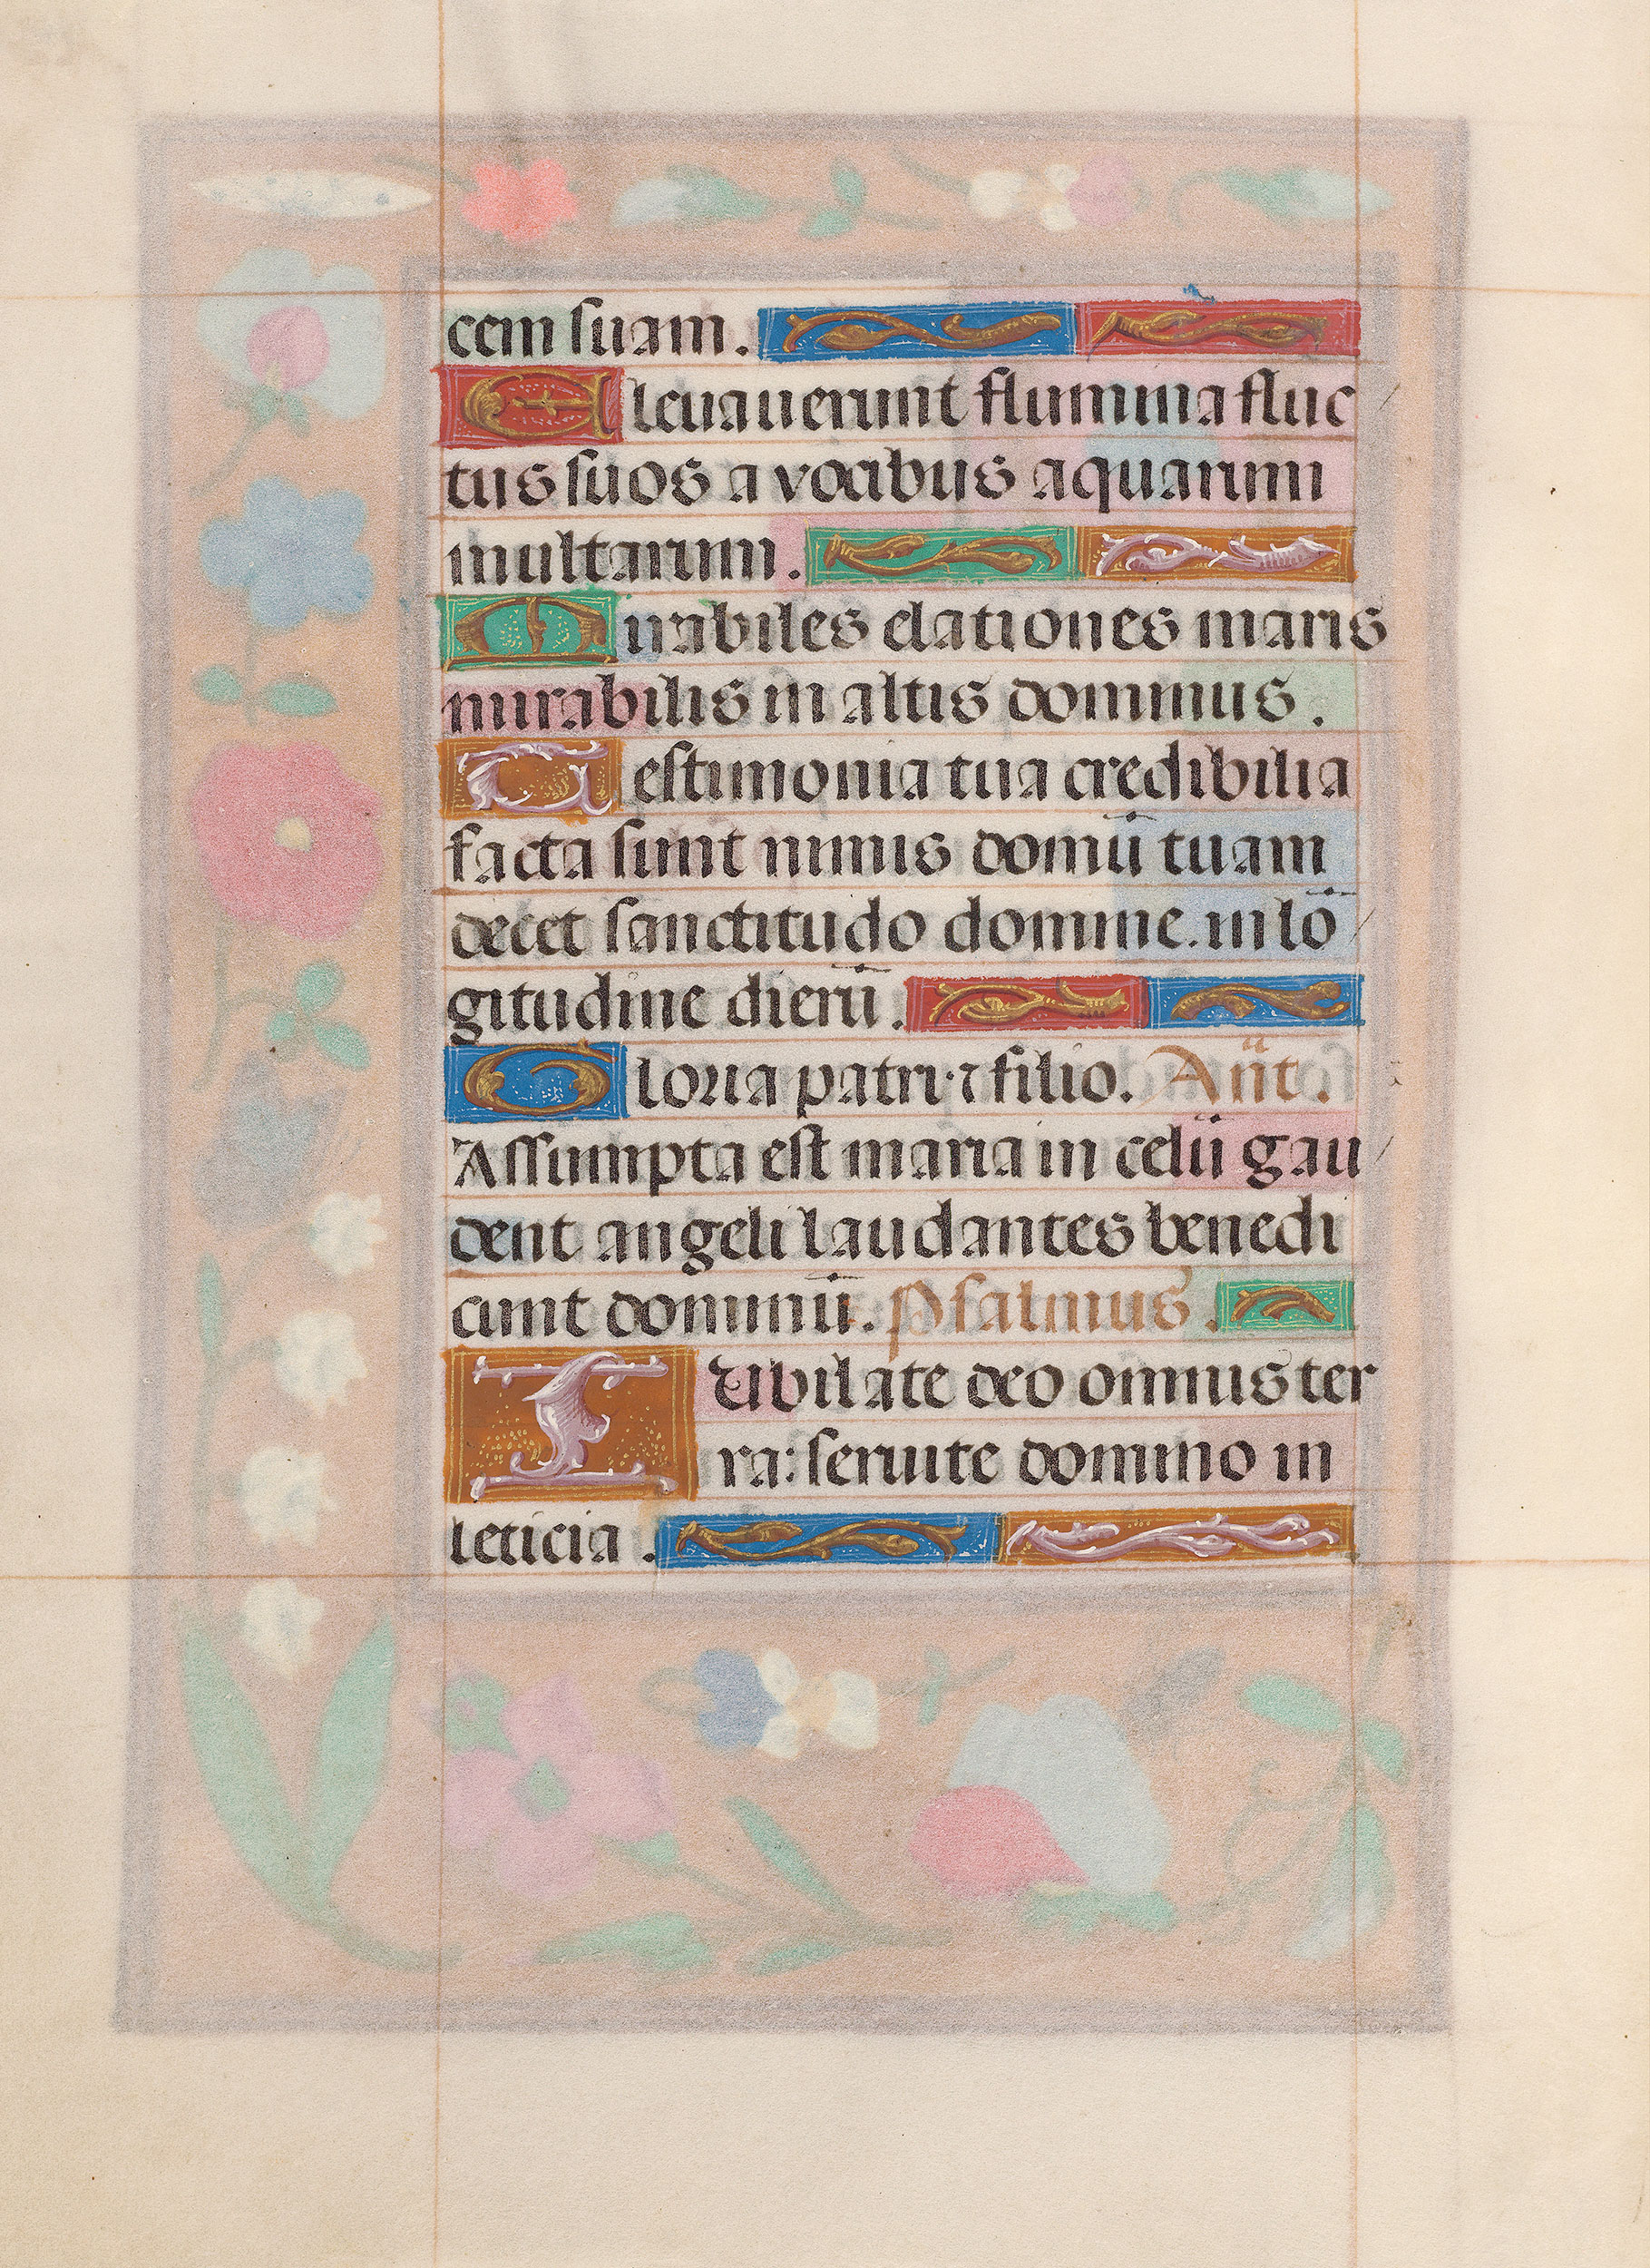 cem suam.
Eleuauerunt flumina fluc
tus suos a vocibus aquarum
multarum.
Mirabiles elationes maris
mirabilis in altis dominus.
Testimonia tua credibilia
facta sunt nimis domū tuam
decet sanctitudo domine. in lō
gitudine dierū.
Gloria patri. ⁊ filio. Añt.
Assumpta est maria in celū gau
dent angeli laudantes benedi
cunt dominū. Psalmus.
IUbilate deo omnis ter
ra: seruite domino in
leticia.